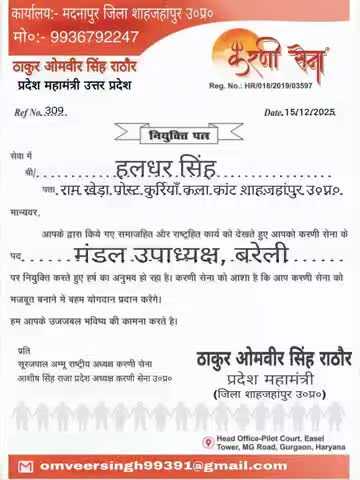 कार्यालय:- मदनापुर जिला शाहजहांपुर उ०प्र०
मो०:- 9936792247
करणी सेना
ठाकुर ओमवीर सिंह राठौर
प्रदेश महामंत्री उत्तर प्रदेश
Reg. No.: HR/018/2019/03597
Ref No. 309.
Date. 15/12/2025
नियुक्ति पत्र
सेवा में
श्री/ हलधर सिंह
पता. राम खेड़ा पोस्ट कुर्रियाँ कला कांट शाहजहांपुर उ०प्र०
मान्यवर,
आपके द्वारा किये गए समाजहित और राष्ट्रहित कार्य को देखते हुए आपको करणी सेना के
पद मंडल उपाध्यक्ष, बरेली
पर नियुक्ति करते हुए हर्ष का अनुभव हो रहा है। करणी सेना को आशा है कि आप करणी सेना को
मजबूत बनाने मे बहम योगदान प्रदान करेंगे।
हम आपके उजजबल भविष्य की कामना करते है।
प्रति
सूरजपाल अम्मू राष्ट्रीय अध्यक्ष करणी सेना
आशीष सिंह राजा प्रदेश अध्यक्ष करणी सेना उ०प्र०
ठाकुर ओमवीर सिंह राठौर
प्रदेश महामंत्री
(जिला शाहजहांपुर उ०प्र०)
Head Office-Pilot Court, Easel
Tower, MG Road, Gurgaon, Haryana
omveersingh99391@gmail.com